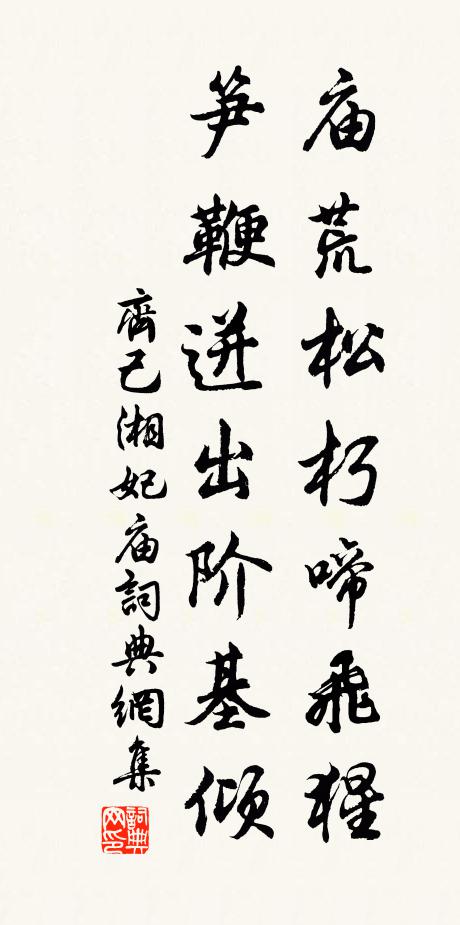 庙荒松朽啼飛猩
笋鞭迸出阶基倾
齊己湘妃庙詞典網集
詞典
网印